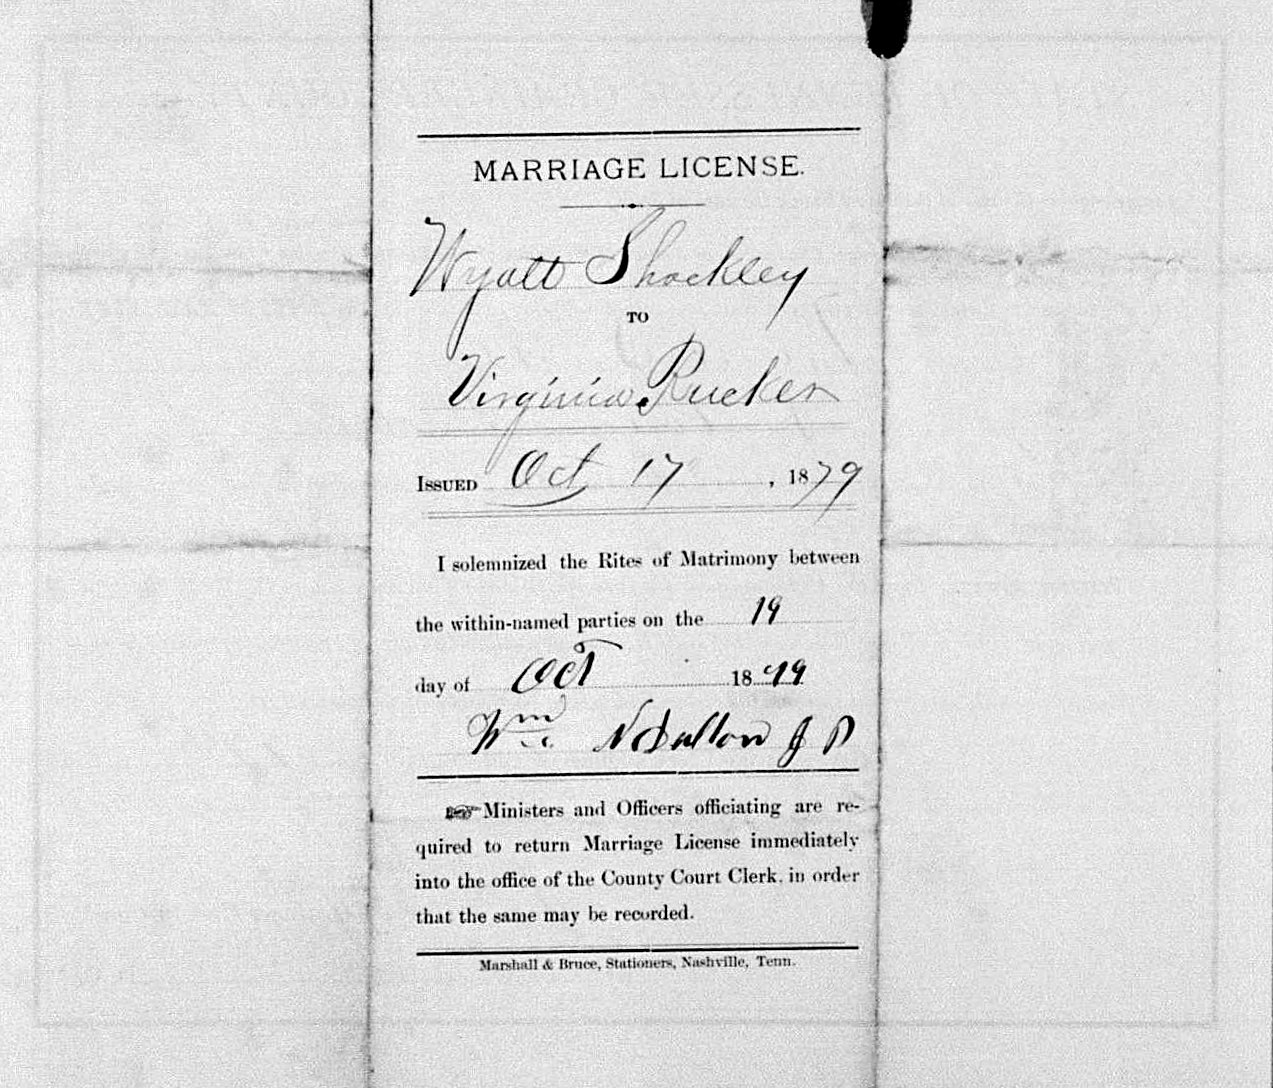 MARRIAGE LICENSE.
Wyatt Shockley
TO
Virginia Rucker
ISSUED Oct 17, 1879
I solemnized the Rites of Matrimony between
the within-named parties on the 19
day of Oct 1879
Wm N Dallon J P
☞ Ministers and Officers officiating are re-
quired to return Marriage License immediately
into the office of the County Court Clerk, in order
that the same may be recorded.
Marshall & Bruce, Stationers, Nashville, Tenn.